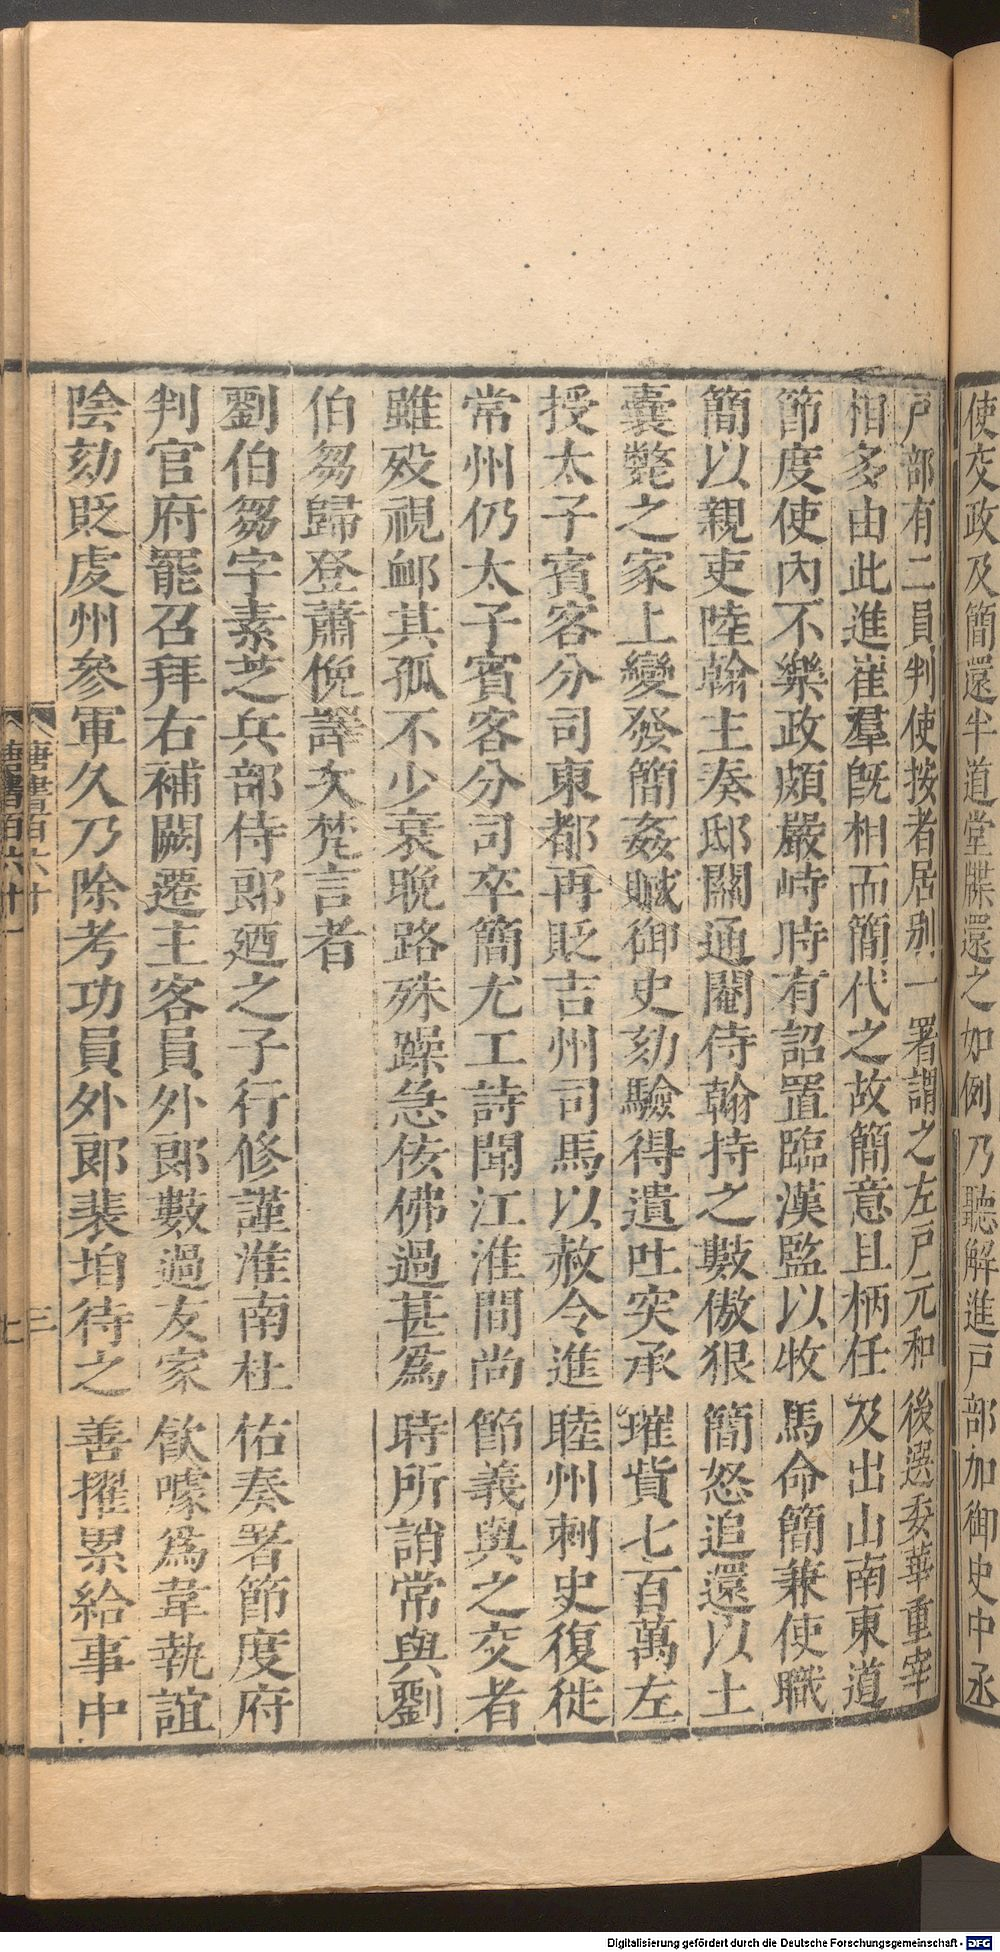 使交政及簡還半道堂牒還之如例乃聽解進戸部加御史中丞
戸部有二員判使按者居别一署謂之左戸元和後選委華重宰
相多由此進崔羣旣相而簡代之故簡意且柄任及出山南東道
節度使內不樂政頗嚴峙時有詔置臨漢監以牧馬命簡兼使職
簡以親吏陸翰主奏邸關通閹侍翰持之數傲狠簡怒追還以土
囊斃之家上變發簡姦贓御史劾驗得遺吐突承璀貲七百萬左
授太子賓客分司東都再貶吉州司馬以赦令進睦州刺史復徙
常州仍太子賓客分司卒簡尤工詩聞江淮間尚節義與之交者
雖歿視䘏其孤不少衰晚路殊躁急佞佛過甚爲時所誚常與劉
伯芻歸登蕭俛譯次梵言者
劉伯芻字素芝兵部侍郎廼之子行修謹淮南杜佑奏署節度府
判官府罷召拜右補闕遷主客員外郎數過友家飮噱爲韋執誼
陰劾貶虔州參軍久乃除考功員外郎裴垍待之善擢累給事中
唐書百六十
三
唐書百六十一
七
Digitalisierung gefördert durch die Deutsche Forschungsgemeinschaft - DFG